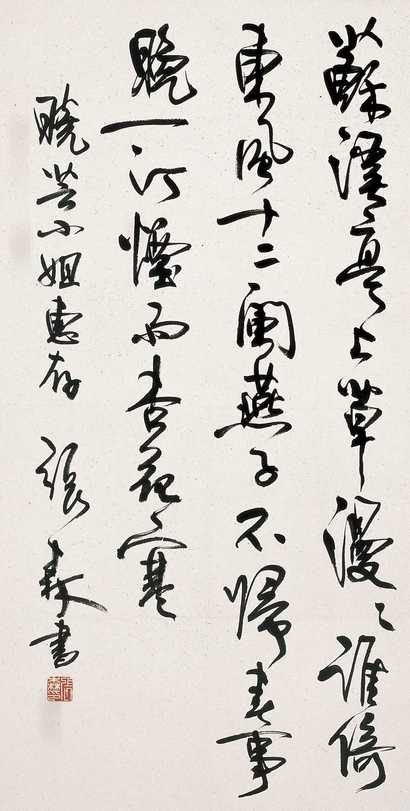 蘇溪亭上草漫々誰倚
東風十二闌燕子不歸春事
晚一汀煙雨杏花寒
曉芸小姐惠存 張森書